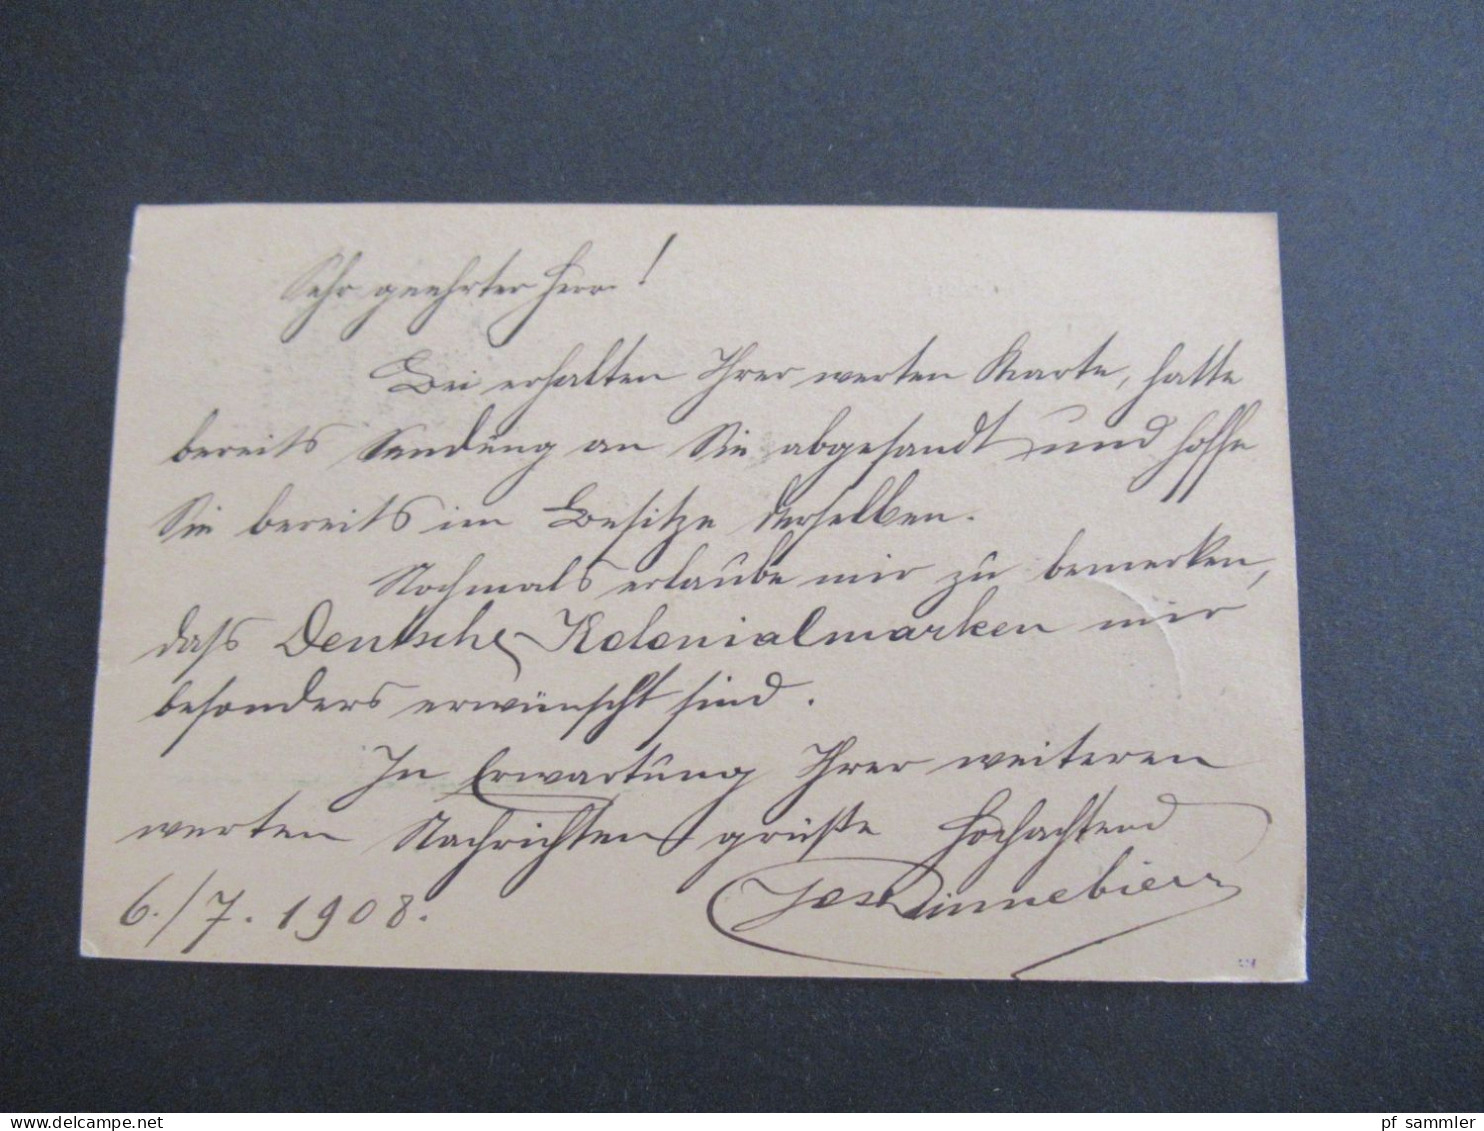 Sehr geehrter Herr!
Bei erhalten Ihrer werten Karte, hatte
bereits Sendung an Sie abgesandt und hoffe
Sie bereits im Besitze derselben.
Nochmals erlaube mir zu bemerken,
dass Deutsche Kolonialmarken mir
besonders erwünscht sind.
In Erwartung Ihrer weiteren
werten Nachrichten grüßte Hochachtend
6./7. 1908. Jos Dinnebier
pf sammler
www.delcampe.net